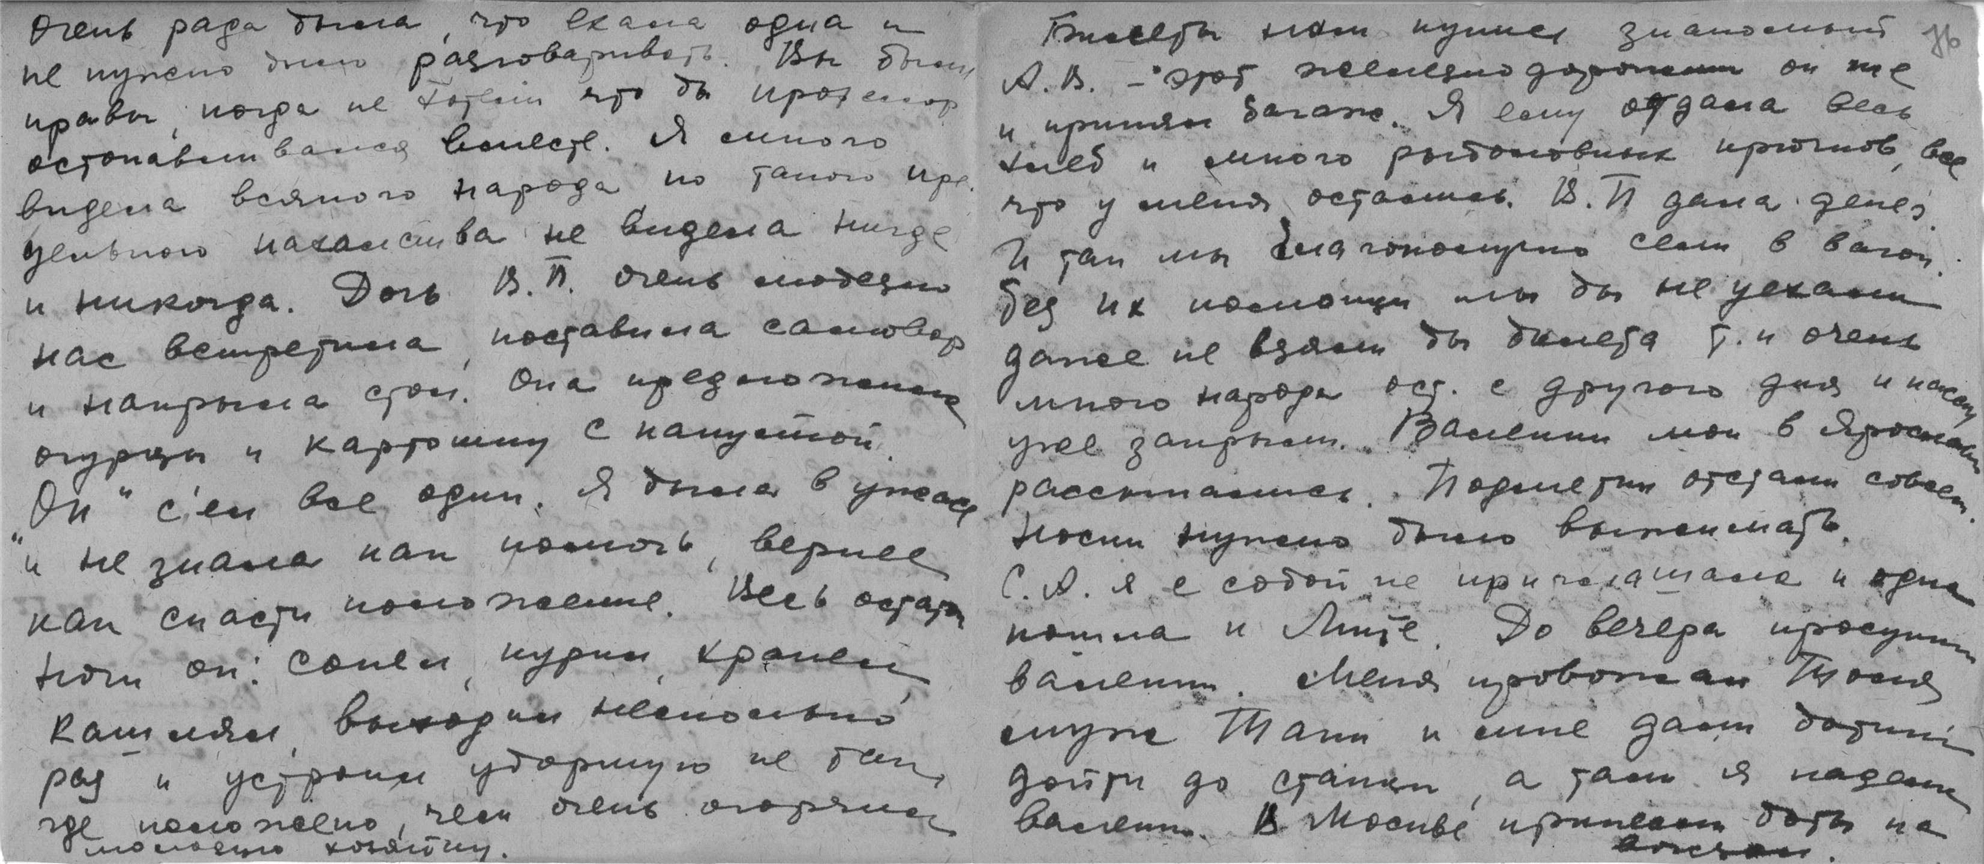 очень рада была, что ехала одна и
не нужно было разговаривать. Вы были
правы, когда не хотели что бы профессор
останавливался вместе. Я много
видела всякого народа но такого пре-
дельного нахальства не видела нигде
и никогда. Дочь В.П. очень любезно
нас встретила, поставила самовар
и накрыла стол. Она предложила
огурцы и картошку с капустой.
"Он" съел все один. Я была в ужасе
и не знала как помочь, вернее
как спасти положение. Весь остаток
ночи он: сопел, курил, храпел
кашлял, выходил несколько
раз и устроил уборную не там,
где положено, чем очень огорчил
молодую хозяйку.
Билеты нам купил знакомый 76
А.В. – этот железнодорожник он же
и принял багаж. Я ему отдала весь
хлеб и много рыболовных крючков, все
что у меня остались. В.П дала денег.
И так мы благополучно сели в вагон.
Без их помощи мы бы не уехали
даже не взяли бы билета т.к очень
много народа ост. с другого дня и кассу
уже закрыли. Валенки мои в Ярославле
рассыпались. Подметки отстали совсем.
Носки нужно было выжимать.
С.А. я с собой не приглашала и одна
пошла к Лите. До вечера просушили
валенки. Меня провожал Толя
муж Тани и мне дали ботинки
дойти до станции, а там я надела
валенки. В Москве принесли боты на
вокзал.